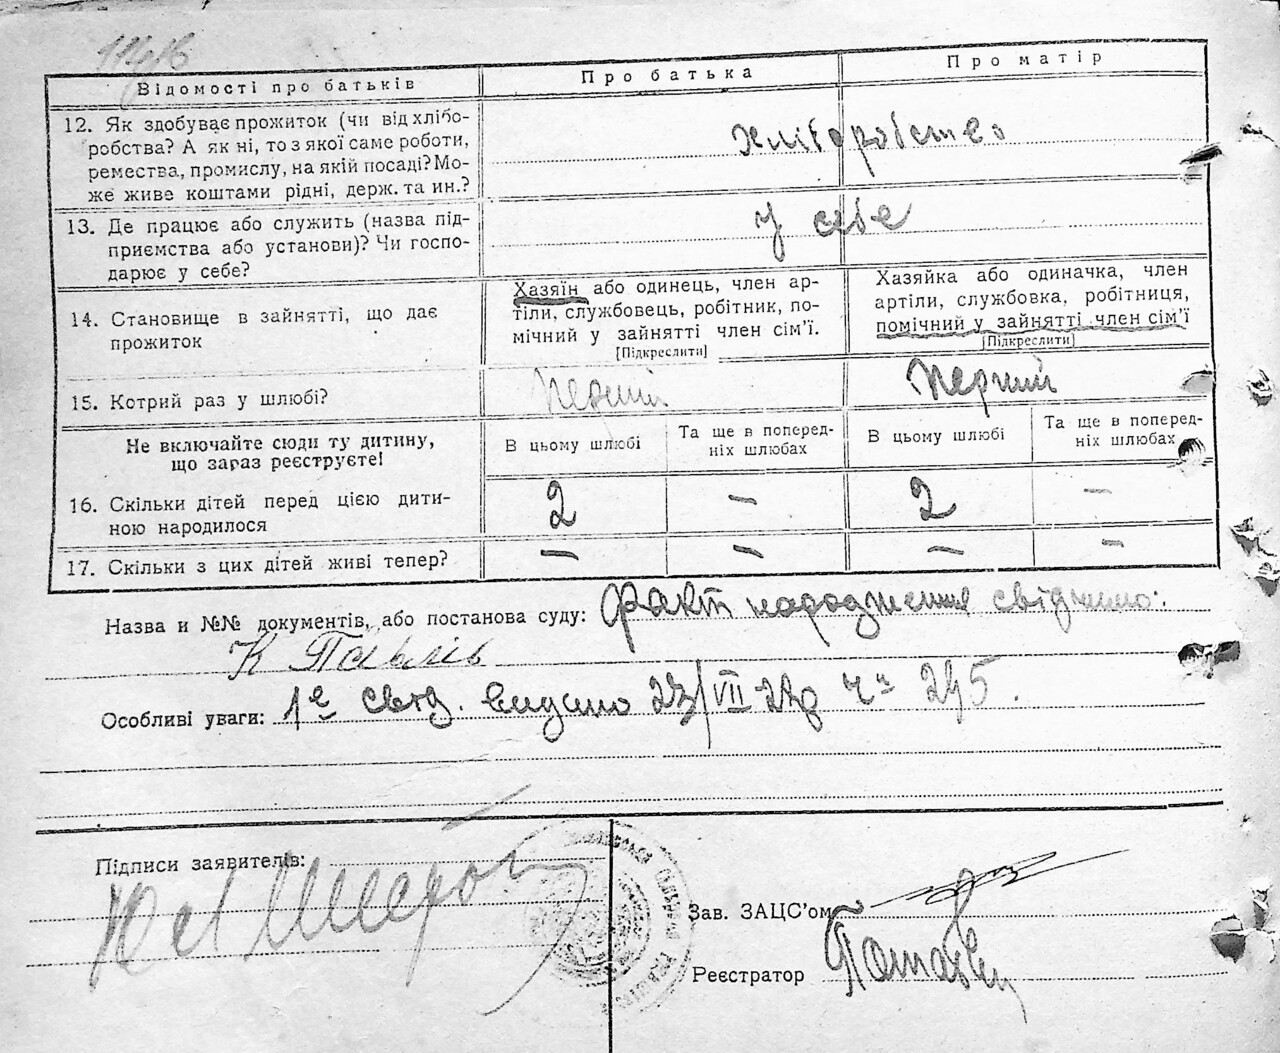 Відомості про батьків
Про батька
Про матір
12. Як здобуває прожиток (чи від хлібо-
робства? А як ні, то з якої саме роботи,
ремества, промислу, на якій посаді? Мо-
же живе коштами рідні, держ. та ин.?
хліборобство
13. Де працює або служить (назва під-
приємства або установи)? Чи госпо-
дарює у себе?
у себе
14. Становище в зайнятті, що дає
прожиток
Хазяїн або одинець, член ар-
тіли, службовець, робітник, по-
мічний у зайнятті член сім'ї.
[Підкреслити]
Хазяйка або одиначка, член
артіли, службовка, робітниця,
помічний у зайнятті член сім'ї
[Підкреслити]
15. Котрий раз у шлюбі?
Перший
Перший
Не включайте сюди ту дитину,
що зараз реєструєте!
В цьому шлюбі
Та ще в поперед-
ніх шлюбах
В цьому шлюбі
Та ще в поперед-
ніх шлюбах
16. Скільки дітей перед цією дити-
ною народилося
2 – 2 –
17. Скільки з цих дітей живі тепер?
– – – –
Назва и №№ документів, або постанова суду: Факт народження свідчимо:
К
Особливі уваги: 1е свід. видано 23/VII-23р чн 295.
Підписи заявителів:
Зав. ЗАЦС'ом
Реєстратор